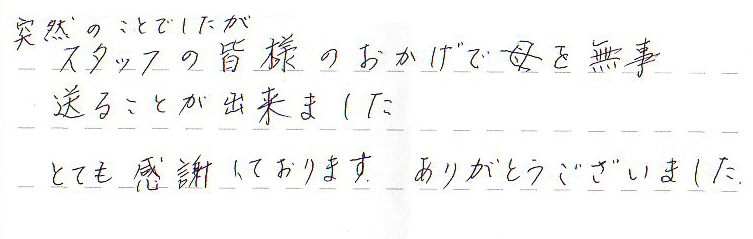 突然のことでしたが
スタッフの皆様のおかげで母を無事
送ることが出来ました
とても感謝しております. ありがとうございました.